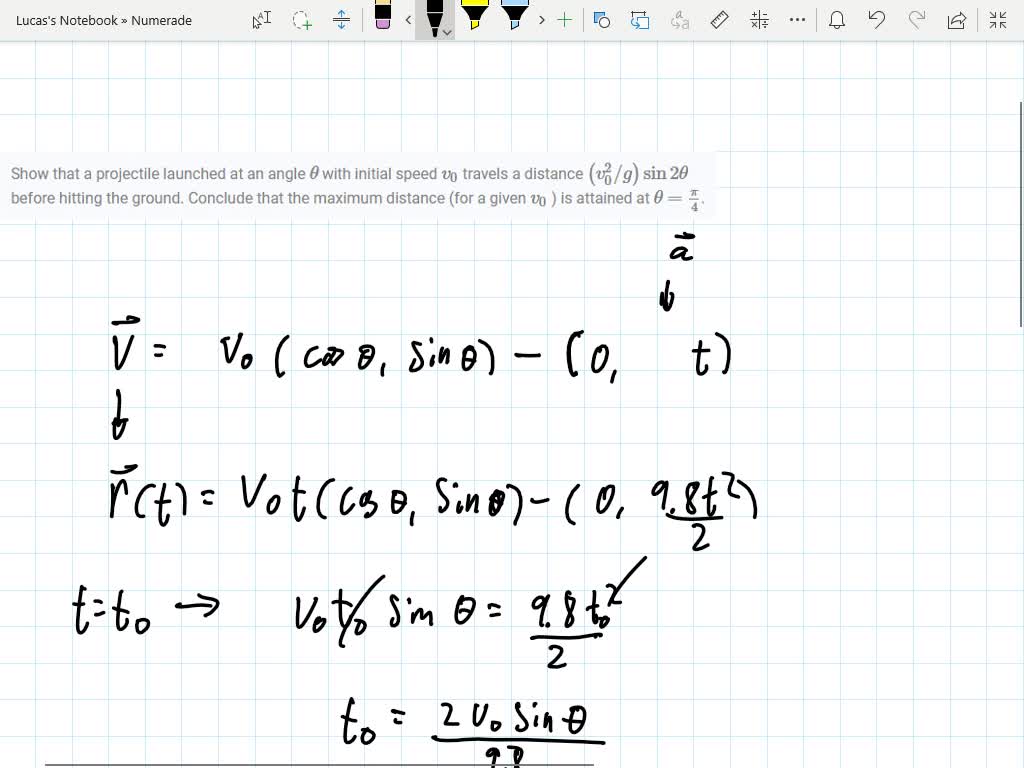 Lucas's Notebook » Numerade
Show that a projectile launched at an angle θ with initial speed v₀ travels a distance (v₀²/g) sin 2θ
before hitting the ground. Conclude that the maximum distance (for a given v₀ ) is attained at θ = π/4.
a⃗
↓
v⃗ = V₀ (cos θ, sin θ) − (0, t)
↓
r⃗(t) = V₀t(cos θ, sin θ) − (0, 9.8t²/2)
t=t₀ → V₀t₀ sin θ = 9.8 t₀²/2
t₀ = 2 V₀ sin θ/9.8